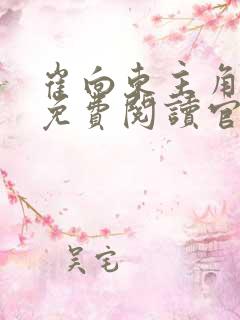 崔向东主角
免費閱讀官
吴宅